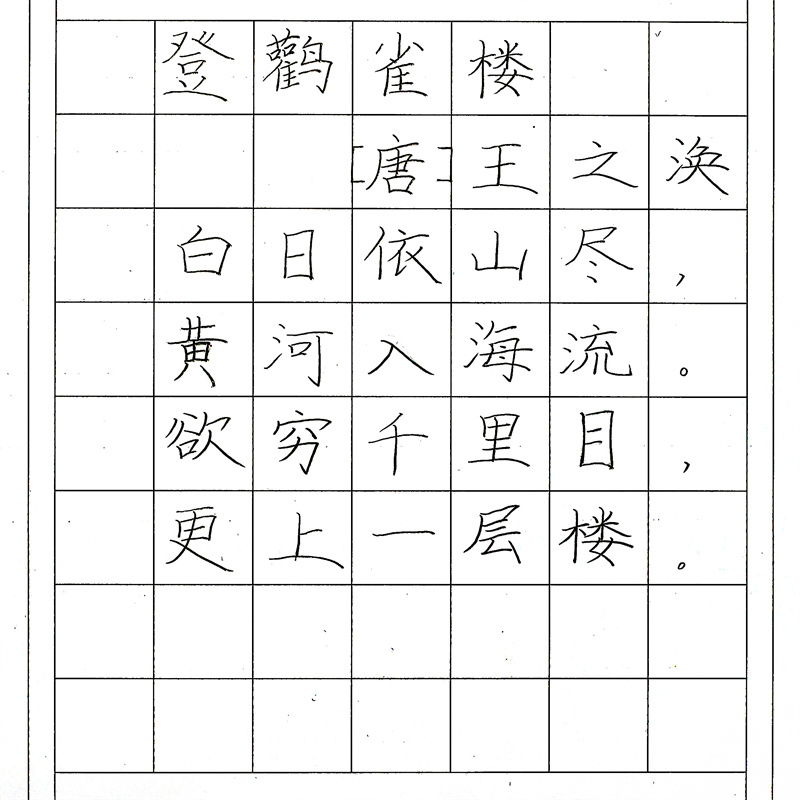 登鸛雀楼
[唐]王之涣
白日依山尽,
黄河入海流。
欲穷千里目,
更上一层楼。